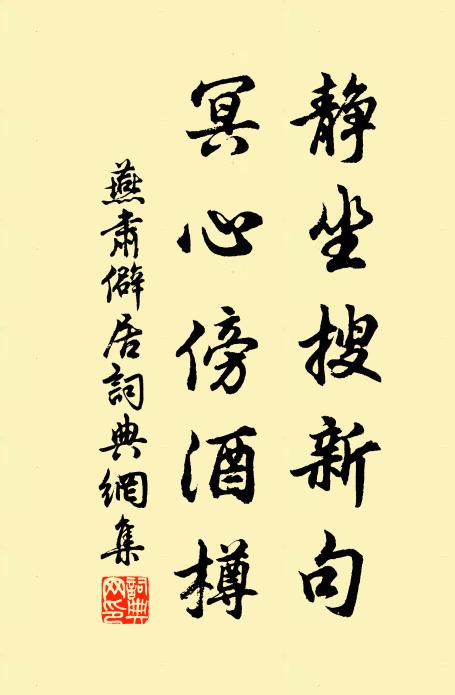 静坐搜新句
冥心傍酒樽
燕肅僻居詞典網集
詞典網印